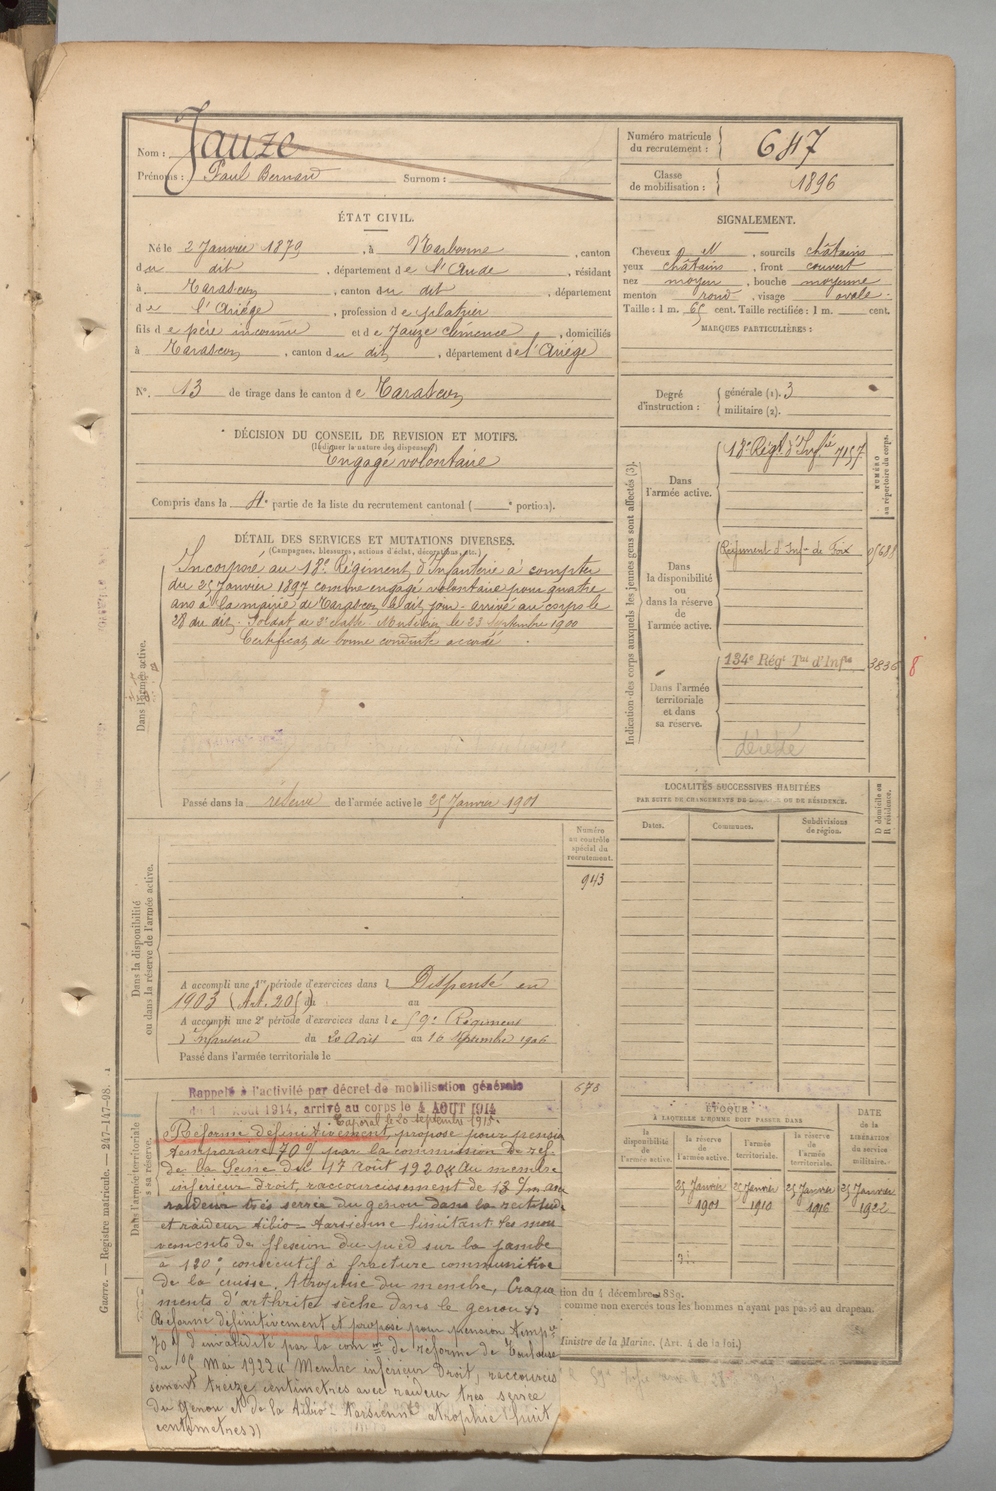 Nom : Jauze
Prénoms : Paul Bernard Surnom :
Numéro matricule du recrutement : 647
Classe de mobilisation : 1896
ÉTAT CIVIL.
Né le 2 Janvier 1879, à Narbonne, canton
du dit, département de l'Aude, résidant
à Tarascon, canton du dit, département
de l'Ariège, profession de platrier
fils de père inconnu et de Jauze Clémence, domiciliés
à Tarascon, canton du dit, département de l'Ariège
N° 13 de tirage dans le canton de Tarascon
SIGNALEMENT.
Cheveux , sourcils châtains
yeux châtains, front couvert
nez moyen, bouche moyenne
menton rond, visage ovale.
Taille : 1 m. 65 cent. Taille rectifiée : 1 m. cent.
MARQUES PARTICULIÈRES :
Degré d'instruction : générale (1). 3
militaire (2).
DÉCISION DU CONSEIL DE REVISION ET MOTIFS.
(Indiquer la nature des dispenses)
Engagé volontaire
Compris dans la 4e partie de la liste du recrutement cantonal ( e portion).
DÉTAIL DES SERVICES ET MUTATIONS DIVERSES.
(Campagnes, blessures, actions d'éclat, décorations, etc.)
Dans l'armée active.
Incorporé au 18e Régiment d'Infanterie à compter
du 25 Janvier 1897 comme engagé volontaire pour quatre
ans à la mairie de Tarascon le dit jour. arrivé au corps le
28 du dit. Soldat de 2e classe. Musicien le 23 septembre 1900
Certificat de bonne conduite accordé.
Passé dans la réserve de l'armée active le 25 Janvier 1901
Indication des corps auxquels les jeunes gens sont affectés (3).
NUMÉRO au répertoire du corps.
Dans l'armée active.
18e Régt d'Infie 7157
Dans la disponibilité ou dans la réserve de l'armée active.
Régiment d'Infie de Foix
Dans l'armée territoriale et dans sa réserve.
134e Régt Tal d'Infie 3836
8
décédé
LOCALITÉS SUCCESSIVES HABITÉES
PAR SUITE DE CHANGEMENTS DE DOMICILE OU DE RÉSIDENCE.
Dates. Communes. Subdivisions de région. D domicile ou R résidence.
Dans la disponibilité ou dans la réserve de l'armée active.
Numéro au contrôle spécial du recrutement.
943
A accompli une 1re période d'exercices dans l Dispensé en
1903 (Art. 20) du au
A accompli une 2e période d'exercices dans le 59e Régiment
d'Infanterie du 20 Août au 16 Septembre 1906
Passé dans l'armée territoriale le
Dans l'armée territoriale
sa réserve.
678
Rappelé à l'activité par décret de mobilisation générale
du 1 Août 1914, arrivé au corps le 4 AOUT 1914
Caporal le 20 septembre 1915.
Réformé définitivement, proposé pour pension
temporaire 70% par la commission de réf.
de la Seine du 17 Août 1920 « Au membre
inférieur droit, raccourcissement de 13 c/m avec
raideur très serrée du genou dans la rectitude
et raideur tibio-tarsienne limitant les mou
vements de flexion du pied sur la jambe
à 120°, consécutif à fracture communitive
de la cuisse. Atrophie du membre, Craque
ments d'arthrite sèche dans le genou »
Réformé définitivement et proposé pour pension tempre
70% d'invalidité par la comon de réforme de Toulouse
du Mai 1922 « Membre inférieur Droit, raccourcis
sement treize centimètres avec raideur très serrée
du Genou et de la tibio-tarsienne atrophie huit
centimètres »
ÉPOQUE
À LAQUELLE L'HOMME DOIT PASSER DANS
la disponibilité de l'armée active. la réserve de l'armée active. l'armée territoriale. la réserve de l'armée territoriale.
DATE de la LIBÉRATION du service militaire.
25 Janvier 1901 25 Janvier 1910 25 Janvier 1916 25 Janvier 1922
tion du 4 décembre 1889.
comme non exercés tous les hommes n'ayant pas passé au drapeau.
Ministre de la Marine. (Art. 4 de la loi.)
Guerre. — Registre matricule. — 247-147-98. 1